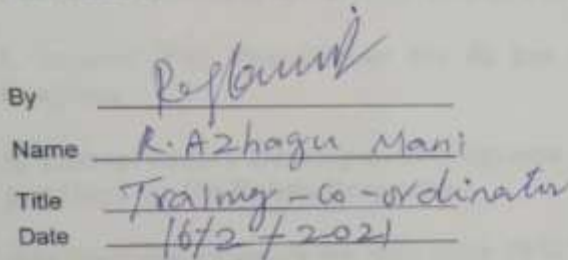 By
Name R. Azhagu Mani
Title Training-Co-ordinator
Date 16/2/2021